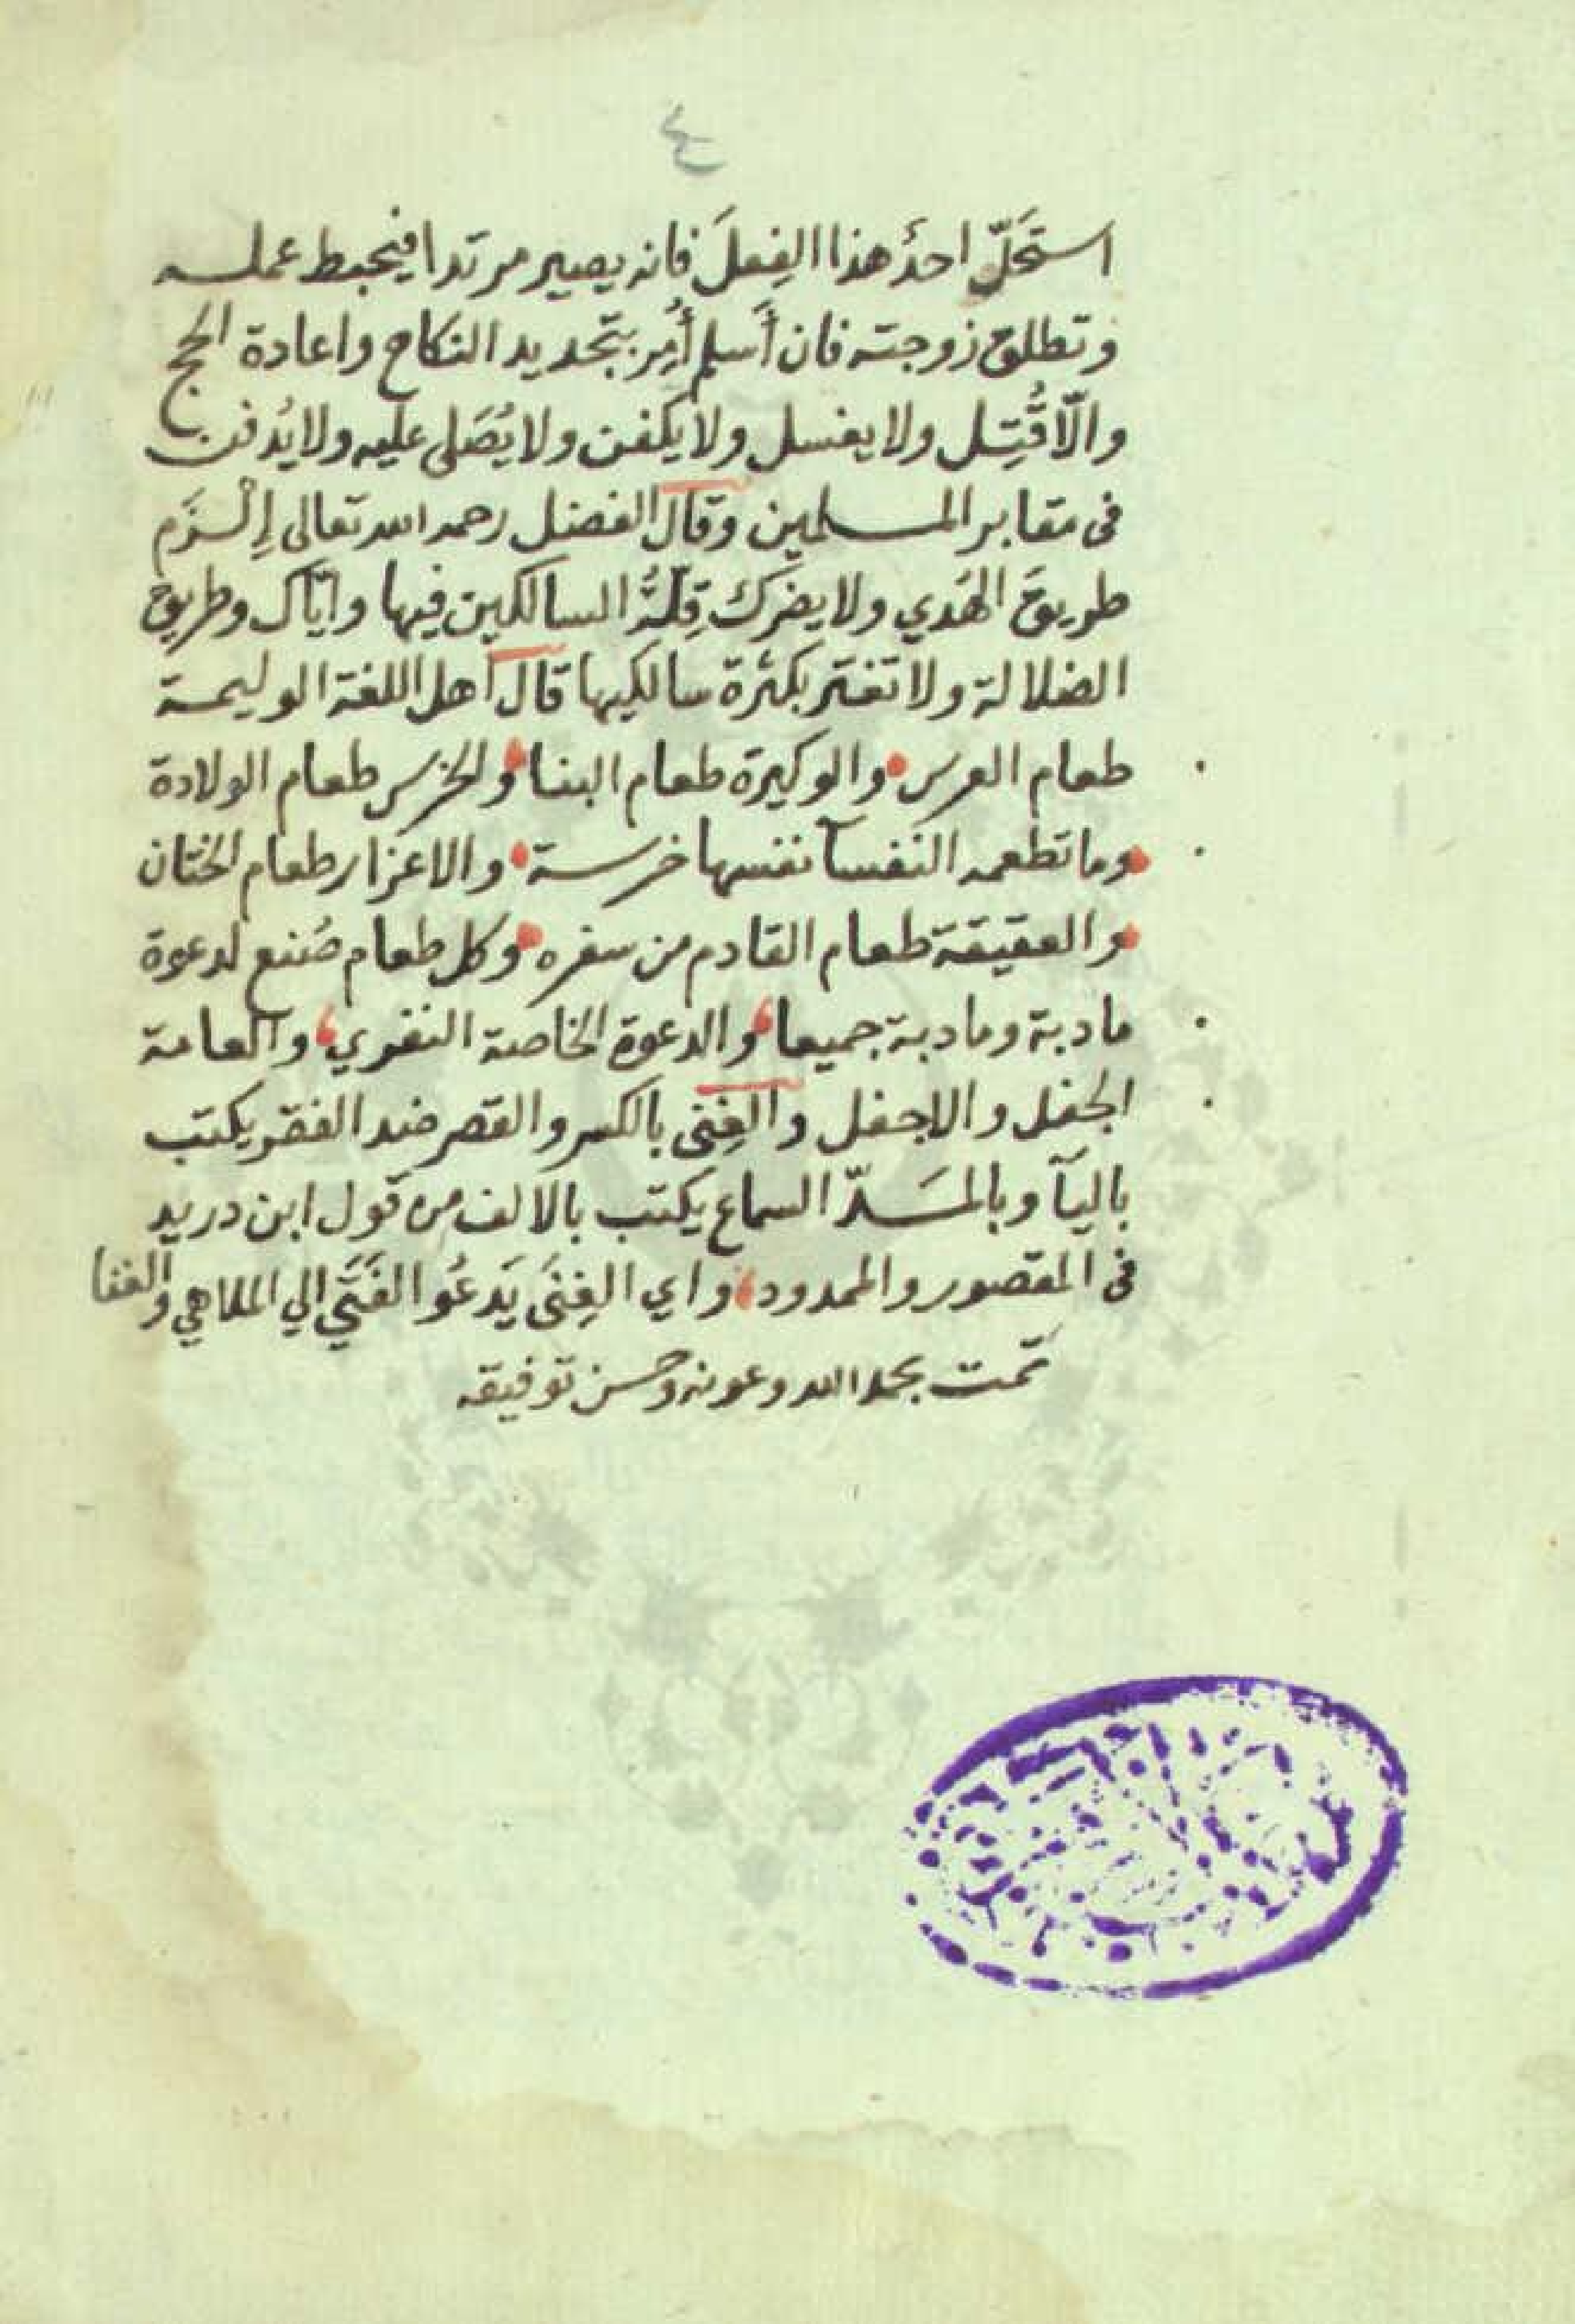 ٤
استَحَلّ احدٌ هذا الفِعلَ فانه يصير مرتدا فيحبط عمله
وتطلق زوجته فان أَسلم أُمِر بتجديد النكاح واعادة الحج
والّا قُتِل ولا يغسل ولا يكفن ولا يُصَلى عليه ولا يُدفن
فى مقابر المسلمين وقال الفضل رحمه الله تعالى إِلْزَم
طريقَ الهَدي ولا يضرك قِلّةُ السالكين فيها وايّاك وطريق
الضلالة ولا تغتر بكثرة سالكيها قال اهل اللغة الوليمة
طعام العرس والوكيرة طعام البنا والخرس طعام الولادة
وما تطعمه النفسآ نفسها خرسة والاعزار طعام الختان
والعقيقة طعام القادم من سفره وكل طعام صُنع لدعوة
مادبة ومادبة جميعا والدعوة الخاصة النقري والعامة
الجفل والاجفل والغِنى بالكسر والقصر ضد الفقر يكتب
باليآ وبالمَدّ السماع يكتب بالالف من قول ابن دريد
فى المقصور والممدود واي الغِنَى يَدعُو الفَتَي الي الملاهي والغنا
تمت بحمد الله وعونه وحسن توفيقه